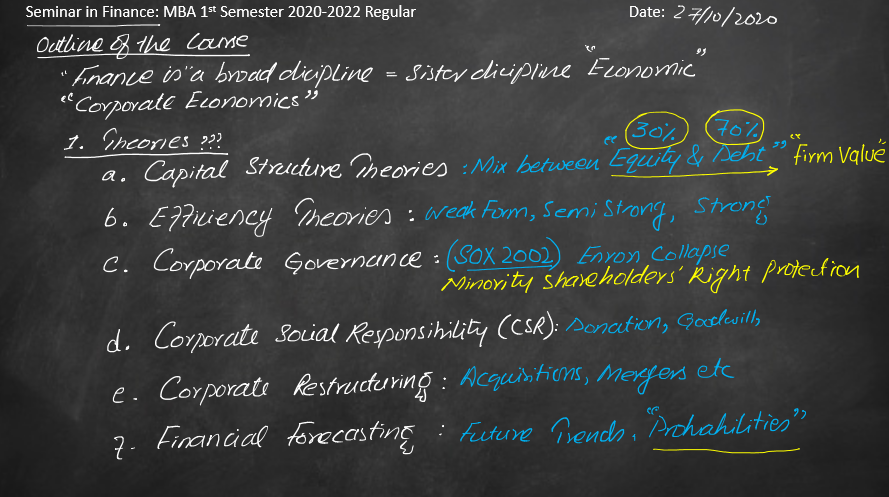 Seminar in Finance: MBA 1st Semester 2020-2022 Regular Date: 27/10/2020
Outline of the Course
"Finance is" a broad dicipline = Sister dicipline "Economic"
"Corporate Economics"
30% 70%
1. Theories ???
a. Capital Structure Theories : Mix between "Equity & Debt" "Firm Value"
b. Efficiency Theories : Weak Form, Semi Strong, Strong
c. Corporate Governance : (SOX 2002) Enron Collapse
Minority Shareholders' Right Protection
d. Corporate Social Responsibility (CSR): Donation, Goodwill,
e. Corporate Restructuring : Acquisitions, Mergers etc
f. Financial Forecasting : Future Trends, "Probabilities"